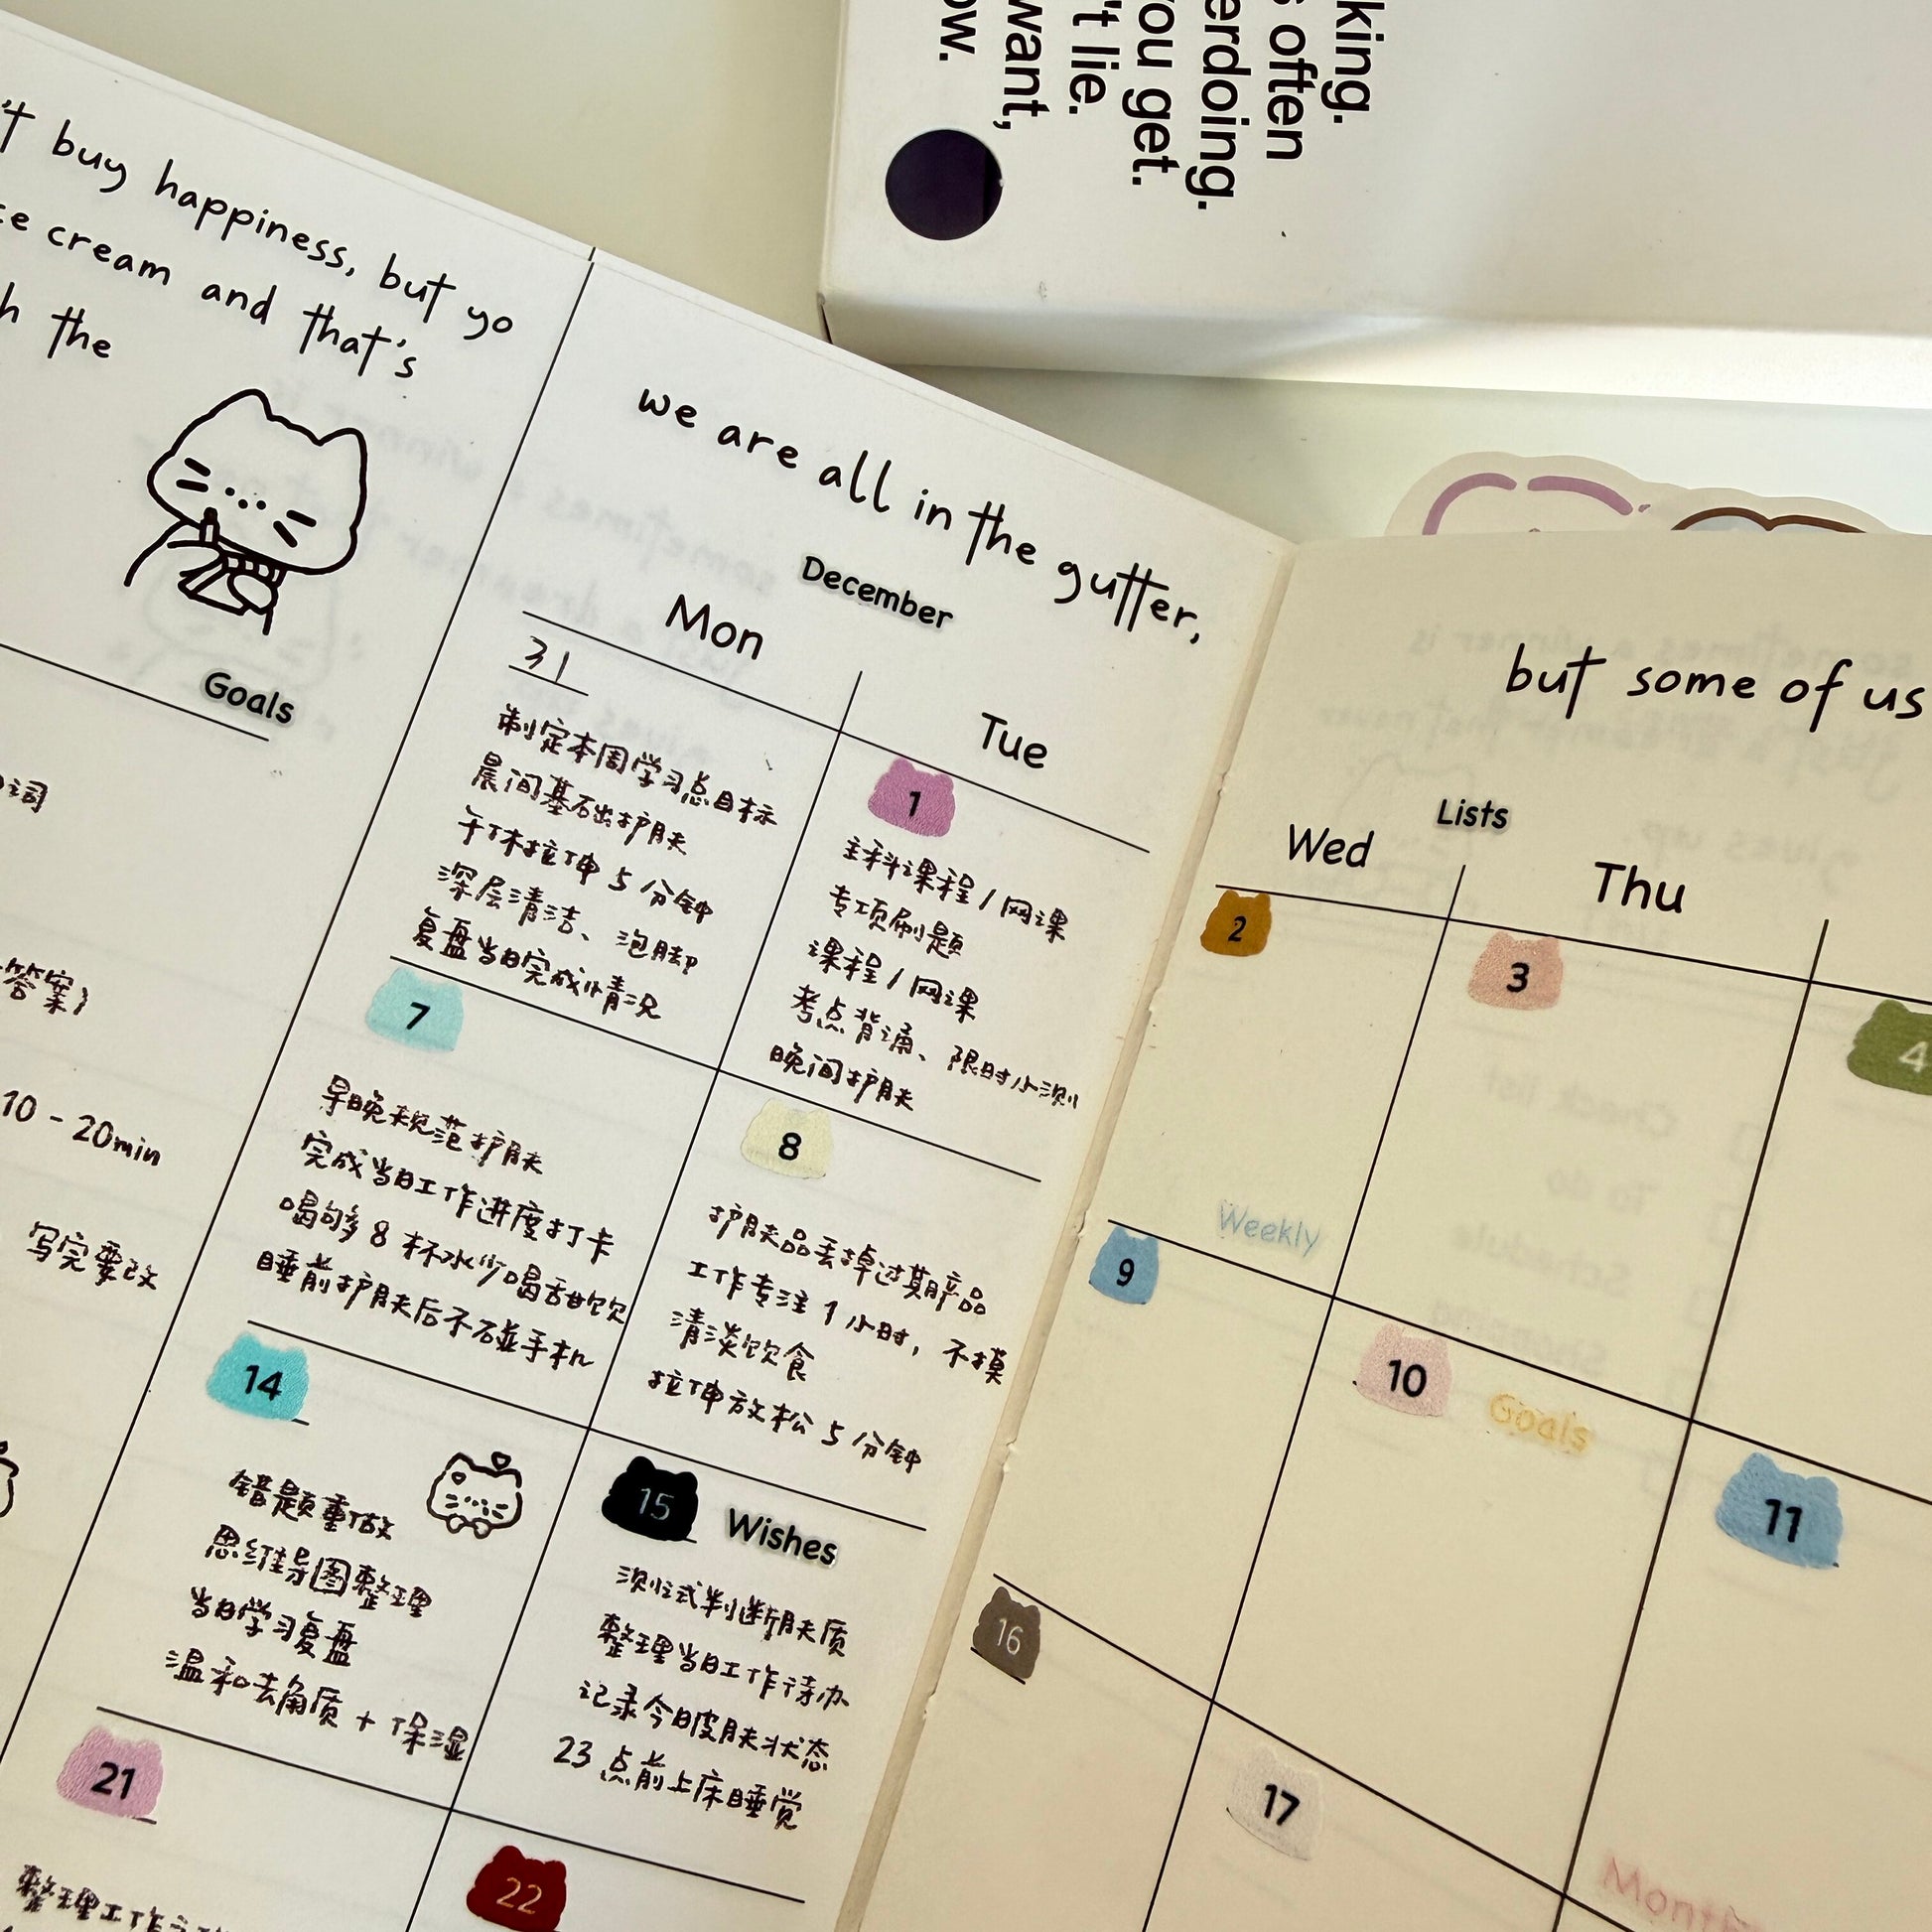 't buy happiness, but yo
ce cream and that's
h the
Goals
词
答案)
10 - 20min
写完要改
we are all in the gutter,
December
Mon
Tue
31
制定本周学习总目标
晨间基础护肤
午休拉伸 5 分钟
深层清洁、泡脚
复盘当日完成情况
1
主科课程 / 网课
专项刷题
课程 / 网课
考点背诵、限时小测
晚间护肤
7
早晚规范护肤
完成当日工作进度打卡
喝够 8 杯水少喝甜饮
睡前护肤后不碰手机
8
护肤品丢掉过期产品
工作专注 1 小时, 不摸
清淡饮食
拉伸放松 5 分钟
14
错题重做
思维导图整理
当日学习复盘
温和去角质 + 保湿
15
Wishes
测试判断肤质
整理当日工作待办
记录今日皮肤状态
23 点前上床睡觉
21
整理工作
22
but some of us
Lists
Wed
Thu
2
3
4
Weekly
9
10
Goals
11
16
17
Month
king.
s often
erdoing.
you get.
't lie.
want,
ow.